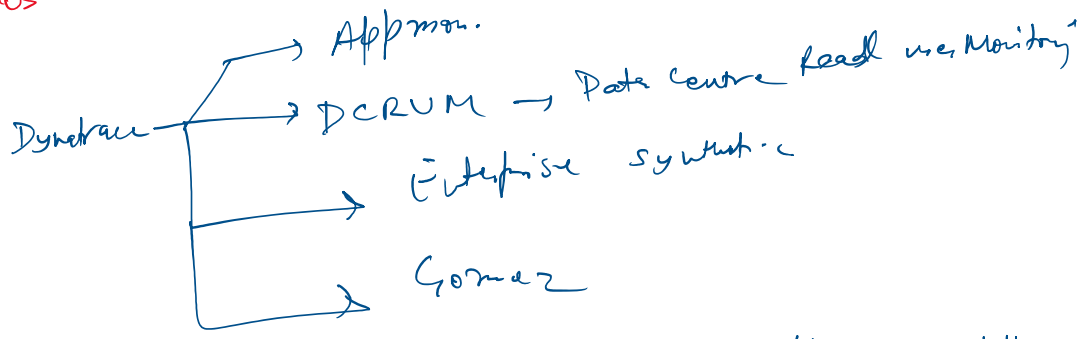 Appmon.
Dynatrace
DCRUM → Data Centre Real user Monitoring
Enterprise Synthetic
Gomez